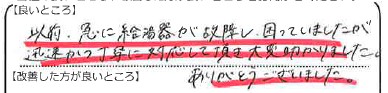 【良いところ】
以前、急に給湯器が故障し、困っていましたが
迅速かつ丁寧に対応して頂き大変助かりました。
【改善した方が良いところ】
ありがとうございました。